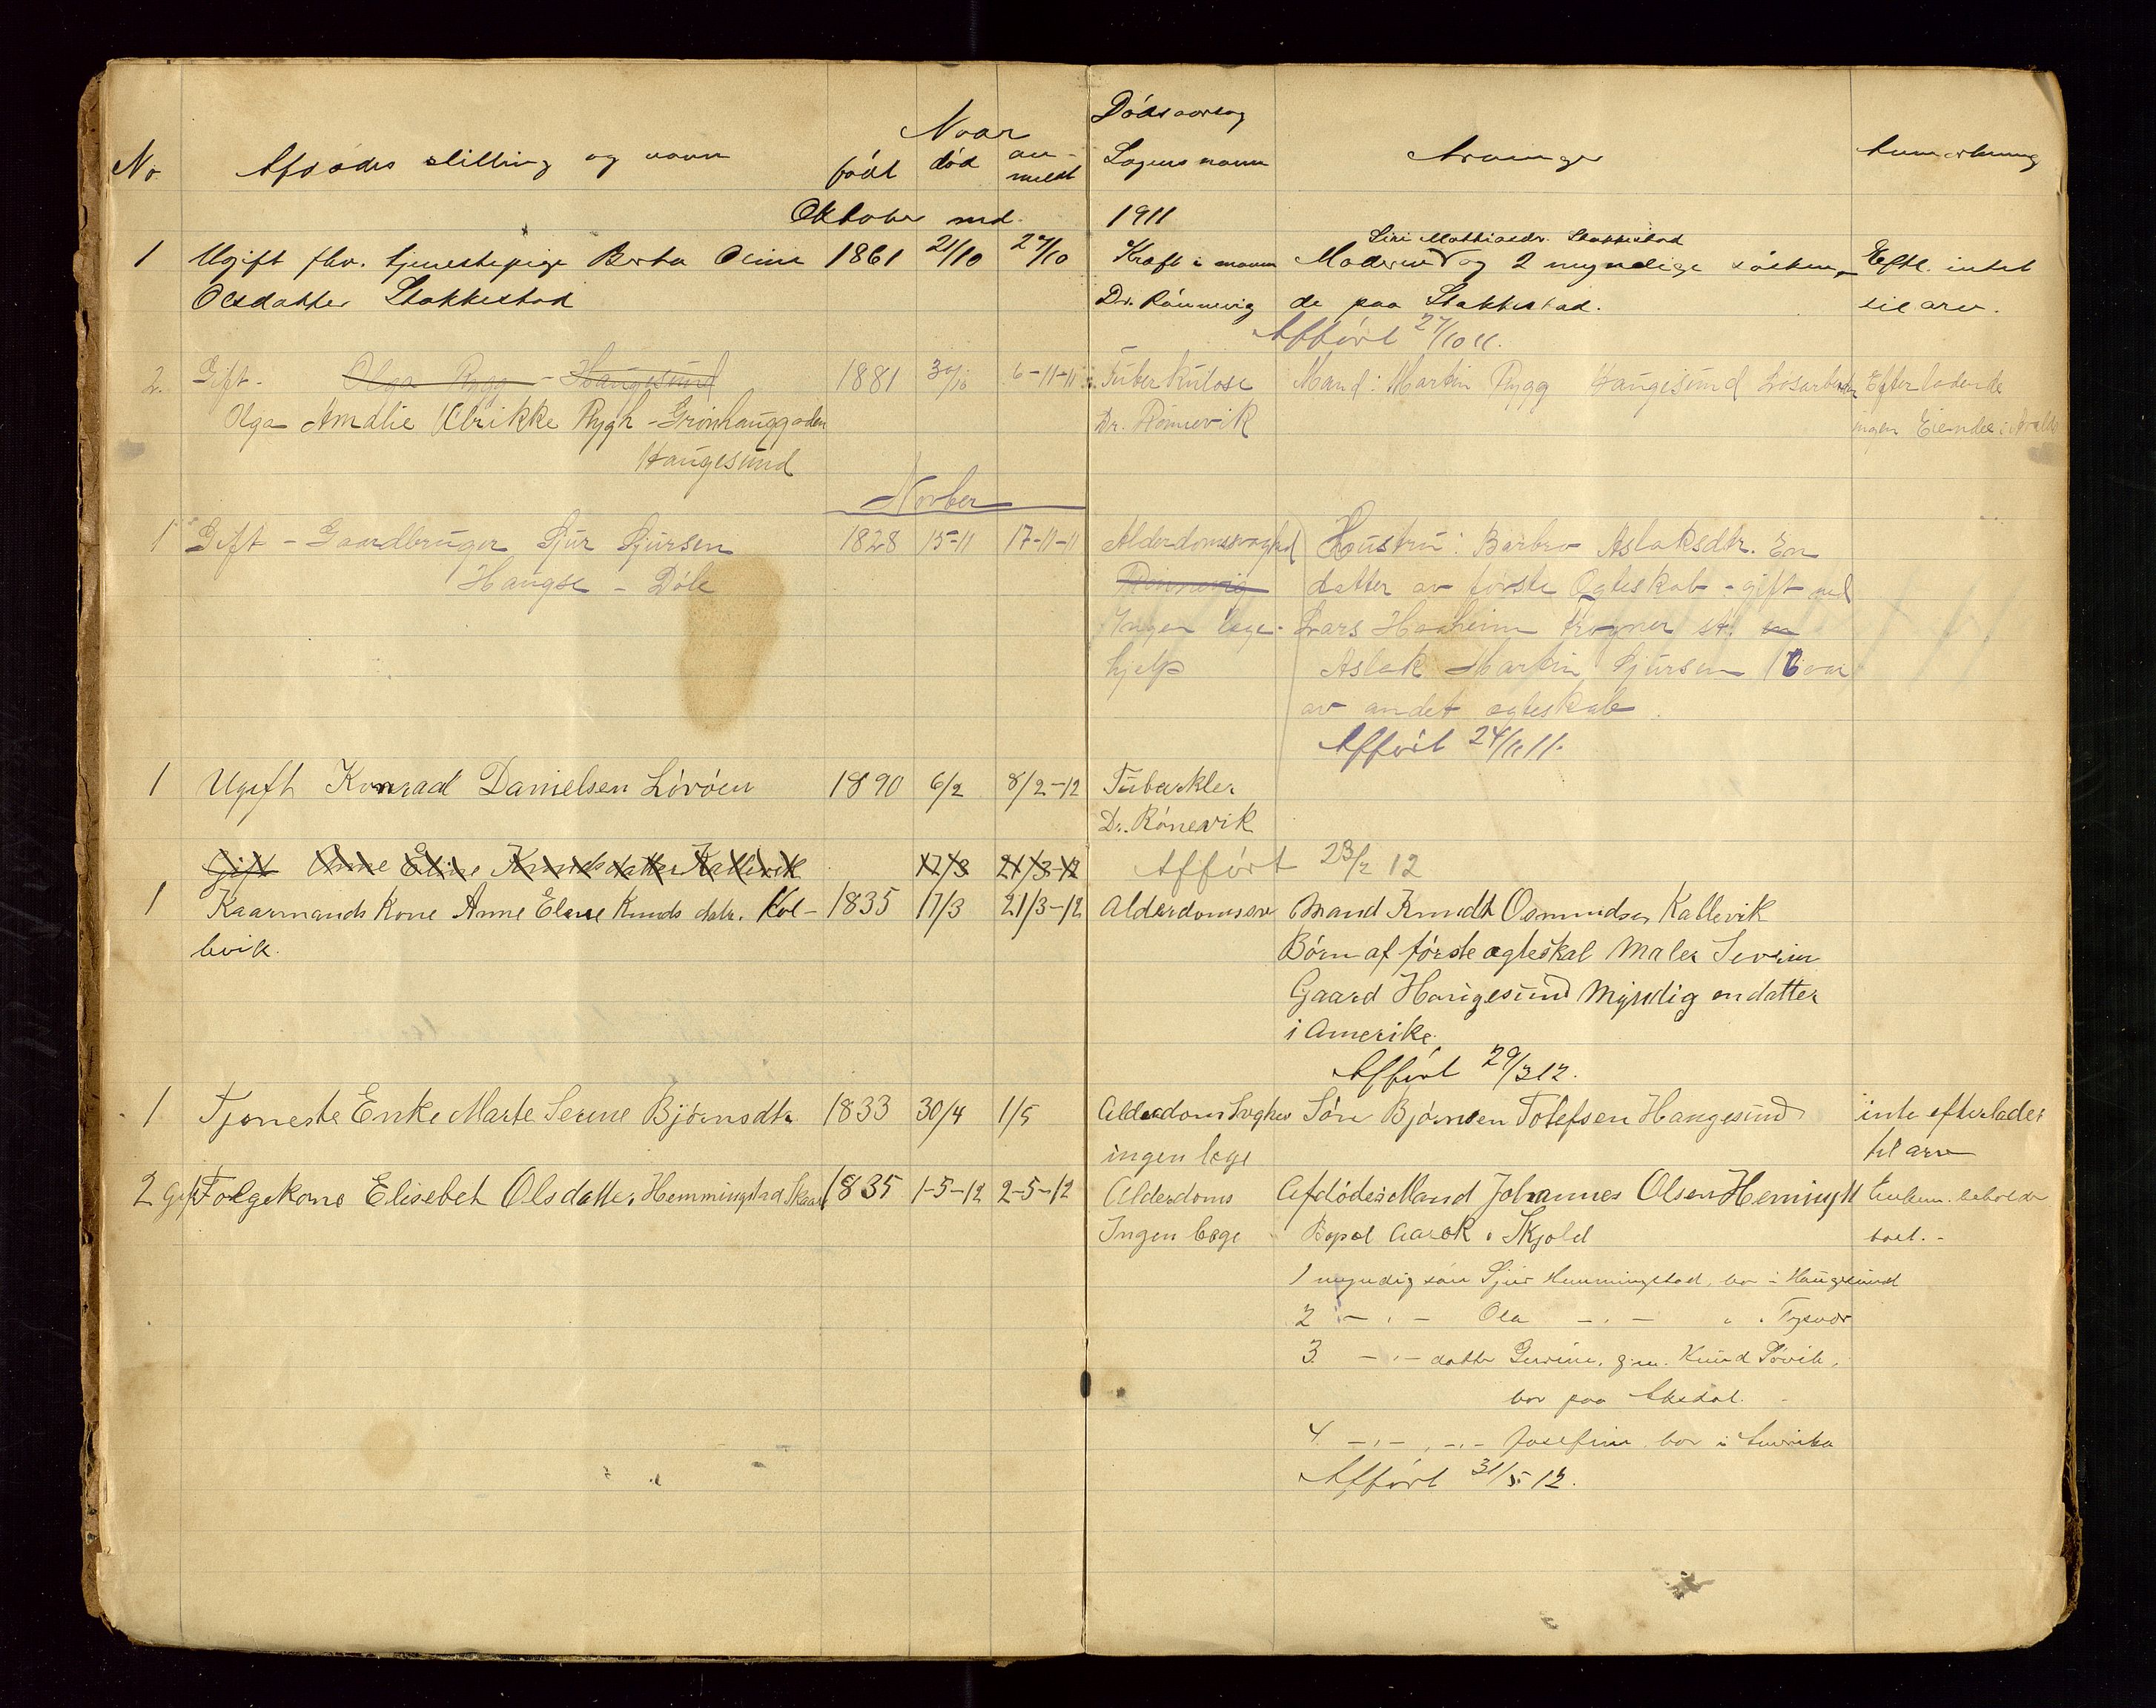 Naar
Dødsaarsag
No Afdødes stilling og navn født død an- meldt Lægens navn Arvinger Anmerkning
Oktober md. 1911
Siri Mathiasdr. Stakkestad
1 Ugift fhv. tjenestepige Berta Oline 1861 21/10 27/10 Kræft i maven Moderen og 2 myndige søsken, Efterl. intet
Olsdatter Stakkestad Dr. Rønnevig de paa Stakkestad. til arv.
Afført 27/10 11.
2. Gift - Olga Rygg - Haugesund 1881 30/10 6-11-11 Tuberkulose Mand: Martin Rygg Haugesund Løsarbeider Efterladende
Olga Amalie Ulrikke Rygh - Grønhauggaden Dr. Rönnevik ingen Eiendele i
Haugesund
Novber
1 Gift - Gaardbruger Sjur Sjursen 1828 15-11 17-11-11 Alderdomssvaghed Hustru: Barbro Aslaksdtr. En
Haugse - Døle Rönnevig datter av første Egteskab - gift med
Ingen læge- Lars Haaheim Frogner st. en
hjelp Aslak Martin Sjursen 16 aar
av andet egteskab.
Afført 24/11 11.
1 Ugift Konrad Danielsen Løvøen 1890 6/2 8/2-12 Tuberkler
Dr. Rönevik
Gift Anne Eline Knudsdatter Kallevik 17/3 21/3-12 Afført 23/2 12
1 Kaarmands Kone Anne Eline Knuds datr. Kal- 1835 17/3 21/3-12 Alderdomssv Mand Knudt Osmundsen Kallevik
levik. Børn af første ægteskab Maler Severin
Gaard Haugesund Myndig en datter
i Amerika.
Afført 29/3 12.
1 Tjeneste Enke Marte Serine Bjørnsdtr 1833 30/4 1/5 Alderdom Svaghed Søn Bjørnsen Tolefsen Haugesund inte efterladet
ingen læge til arv
2 Gift Folgekone Elisebet Olsdatter Hemmingstad Skaar 1835 1-5-12 2-5-12 Alderdoms Afdødes Mand Johannes Olsen Hemingst Enkem. beholder
Ingen læge Bopel Aarek i Skjold boet. -
1 myndig søn Sjur Hemmingstad, bor i Haugesund
2 - " - Ola - " - " " Tysvær
3. - " - datter Serine, g.m. Knud Søvik,
bor paa Aksdal.
4. - " - , - " - Josefine bor i Amerika
Afført 31/5 12.